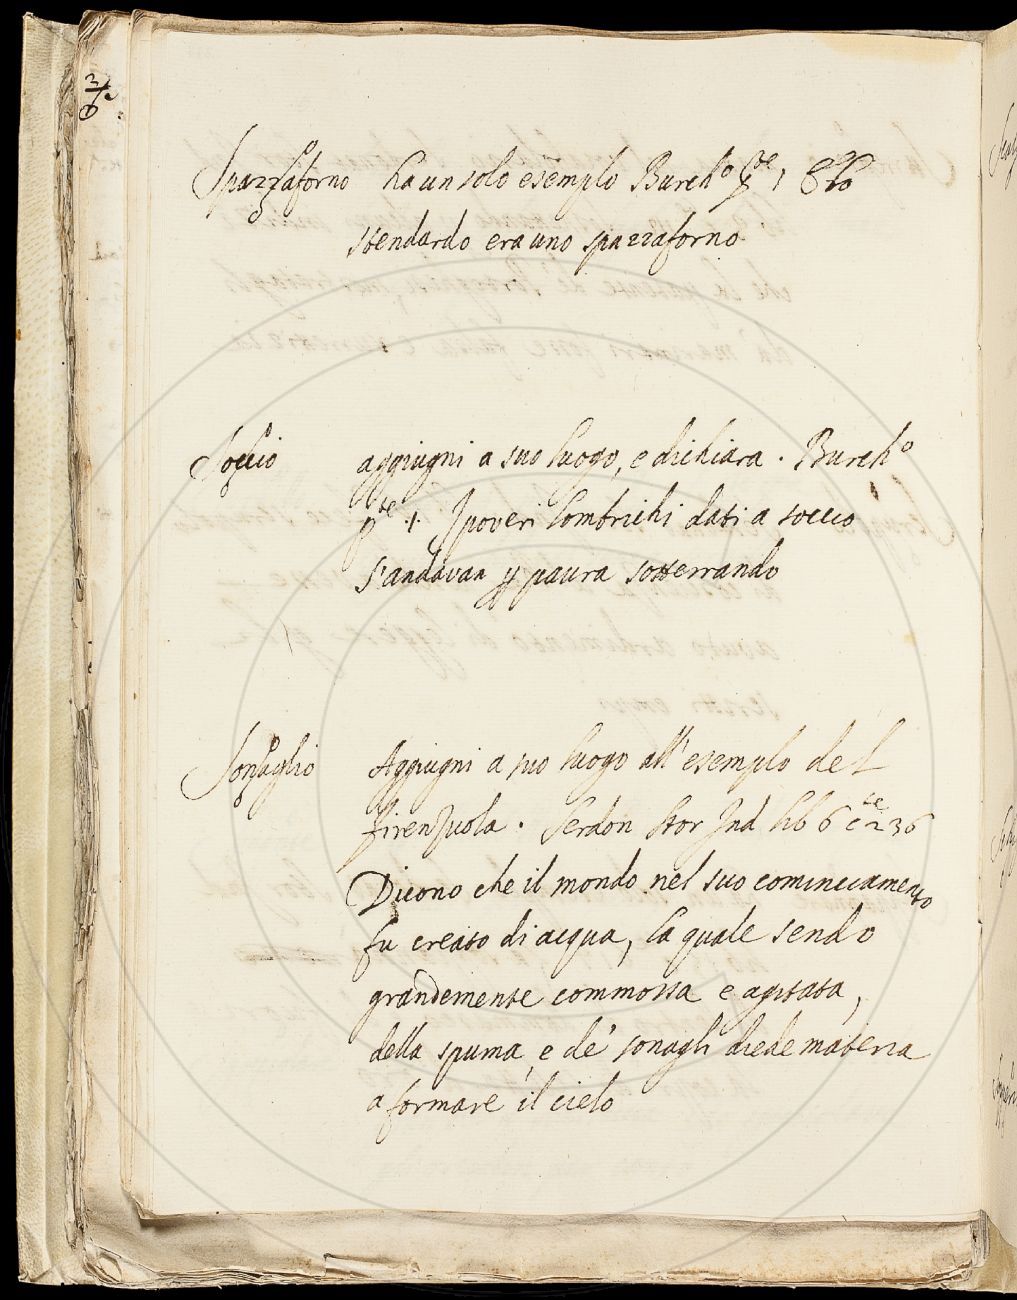 Spazzaforno ha un solo esemplo Burch.o p.te 1
stendardo era uno spazzaforno.
Soccio aggiugni a suo luogo, e dichiara. Burch.o
p.te 1. I poveri lombrichi dati a soccio
S'andavan p paura sotterrando
Sonaglio Aggiugni a suo luogo all'esemplo del
firenzuola. Serdon Stor Ind lib 6 c.te 236
Dicono che il mondo nel suo cominciamento
fu creato di acqua, la quale sendo
grandemente commossa e agitata,
della spuma, e de' sonagli diede materia
a formare il cielo